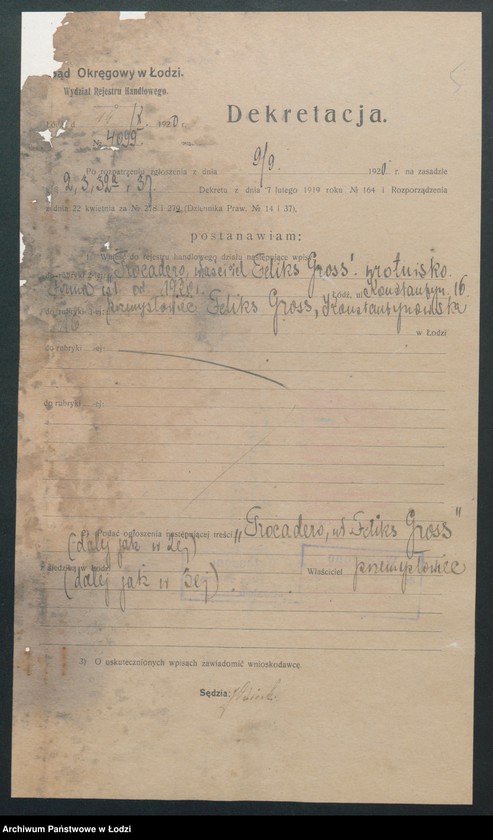 Sąd Okręgowy w Łodzi.
Wydział Rejestru Handlowego.
1920 r.
№ 4099
Dekretacja.
Po rozpatrzeniu zgłoszenia z dnia 9/9. 1920 r. na zasadzie
Dekretu z dnia 7 lutego 1919 roku № 164 i Rozporządzenia
z dnia 22 kwietnia za № 278 i 279 (Dziennika Praw. № 14 i 37),
postanawiam:
1) Wnieść do rejestru handlowego działu następujące wpisy
"Trocadero, właściciel Feliks Gross". wrotnisko.
Firma ist. od. 1920 r. Łódź, ul. Konstantyn. 16.
przemysłowiec Feliks Gross, Konstantynowska
16 w Łodzi
do rubryki ej:
do rubryki ej:
2) Podać ogłoszenia następującej treści "Trocadero, wł. Feliks Gross"
(dalej jak w 2ej)
Właściciel przemysłowiec
(dalej jak w 2ej).
3) O uskutecznionych wpisach zawiadomić wnioskodawcę
Sędzia:
Archiwum Państwowe w Łodzi